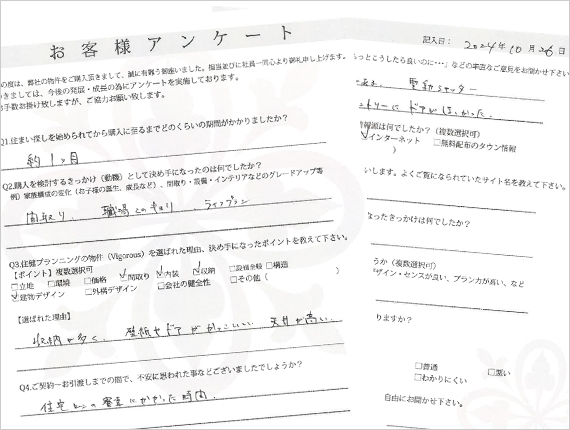 お客様アンケート
の度は、弊社の物件をご購入頂きまして、誠に有難う御座いました。担当並びに社員一同心より御礼申し上げます。
きましては、今後の発展・成長の為にアンケートを実施しております。
お手数お掛け致しますが、ご協力お願い致します。
Q1.住まい探しを始められてから購入に至るまでどのくらいの期間がかかりましたか?
約1ヶ月
Q2.購入を検討するきっかけ（動機）として決め手になったのは何でしたか?
例）家族構成の変化（お子様の誕生、成長など）、間取り・設備・インテリアなどのグレードアップ等
間取り、職場との距離 ライフプラン
Q3.住健プランニングの物件（Vigorous）を選ばれた理由、決め手になったポイントを教えて下さい。
【ポイント】複数選択可
□立地 □環境 □価格 ☑間取り ☑内装 ☑収納 □設備全般 □構造
☑建物デザイン □外構デザイン □会社の健全性 □その他（ ）
【選ばれた理由】
収納が多く、壁紙やドアがかっこいい 天井が高い。
Q4.ご契約～お引渡しまでの間で、不安に思われた事などございましたでしょうか?
住宅ローンの審査にかかった時間
記入日： 2024年10月26日
っとこうしたら良いのに…」などの率直なご意見をお聞かせ下さい
電動シャッター
ントリーにドアがほしかった。
情報源は何でしたか?（複数選択可）
☑インターネット □無料配布のタウン情報
）
いします。よくご覧になられていたサイト名を教えて下さい。
なったきっかけは何でしたか?
うか（複数選択可）
デザイン・センスが良い、プラン力が高い、など
りますか?
□普通 □悪い
□わかりにくい
自由にお聞かせ下さい。